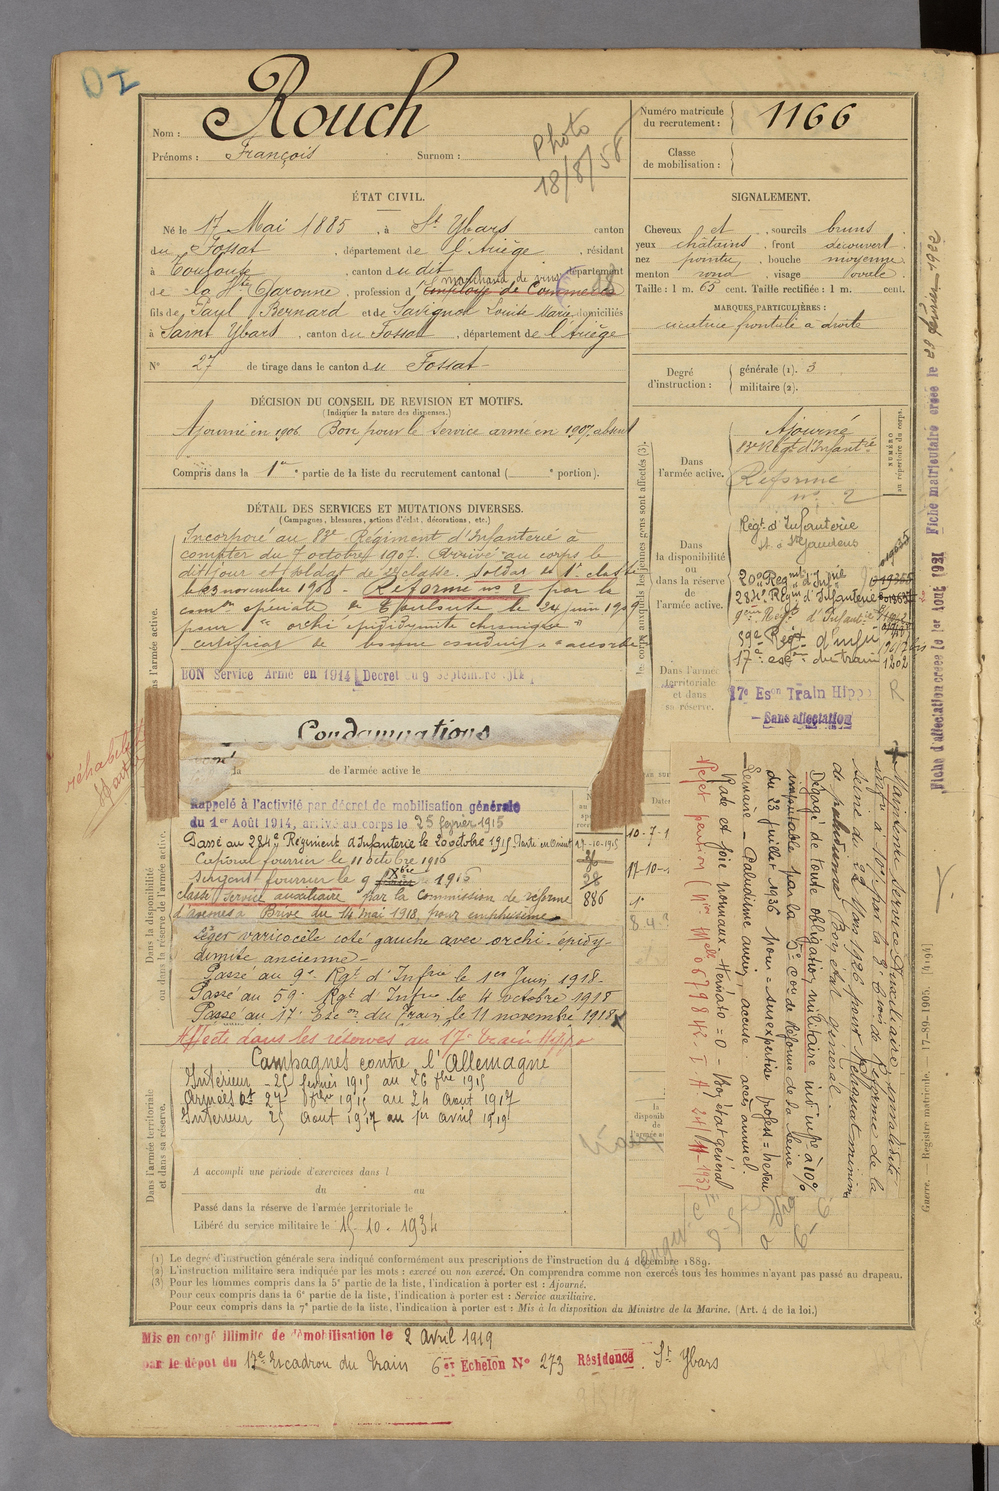 Nom : Rouch
Prénoms : François Surnom :
Photo
18/8/58
Numéro matricule
du recrutement : 1166
Classe
de mobilisation :
ÉTAT CIVIL.
Né le 17 Mai 1885, à St Ybars canton
du Fossat, département de l'Ariège, résidant
à Toulouse, canton du dit, département
marchand de vins
de la Hte Garonne, profession d'Employé de Commerce
fils de Paul Bernard et de Savignol Louise Marie domiciliés
à Saint Ybars, canton du Fossat, département de l'Ariège
N° 27 de tirage dans le canton du Fossat
SIGNALEMENT.
Cheveux et sourcils bruns
yeux châtains, front découvert
nez pointu, bouche moyenne
menton rond, visage ovale
Taille : 1 m. 65 cent. Taille rectifiée : 1 m. cent.
MARQUES PARTICULIÈRES :
cicatrice frontale à droite
Degré
d'instruction :
générale (1). 3
militaire (2).
DÉCISION DU CONSEIL DE REVISION ET MOTIFS.
(Indiquer la nature des dispenses.)
Ajourné en 1906. Bon pour le service armé en 1907, absent
Compris dans la 1re partie de la liste du recrutement cantonal ( e portion).
DÉTAIL DES SERVICES ET MUTATIONS DIVERSES.
(Campagnes, blessures, actions d'éclat, décorations, etc.)
Incorporé au 83e Régiment d'Infanterie à
compter du 7 octobre 1907. Arrivé au corps le
dit jour et soldat de 2e classe. Soldat de 1e classe
le 23 novembre 1908. Réformé n° 2 par la
comon spéciale de Toulouse le 24 juin 190
pour orchi épididymite chronique
certificat de bonne conduite accordé
BON Service Armé en 1914 Décret du 9 Septembre 1914
Condamnations
de l'armée active le
réhabilité
Rappelé à l'activité par décret de mobilisation générale
du 1er Août 1914, arrivé au corps le 25 février 1915
Passé au 284e Régiment d'Infanterie le 20 octobre 1915
Caporal fourrier le 11 octobre 1916
Sergent fourrier le 9 Xbre 1916
classé service auxiliaire par la Commission de réforme
d'Asnones à Brive du 14 mai 1918, pour emphisème
Léger varicocèle coté gauche avec orchi-épidy-
dimite ancienne
Passé au 9e Rgt d'Infrie le 1er Juin 1918
Passé au 59e Rgt d'Infrie le 4 octobre 1918
Passé au 17e Escon du Train le 11 novembre 1918
Affecté dans les réserves au 17e Train Hippo
Campagnes contre l'Allemagne
Intérieur 25 février 1915 au 26 1915
Armées 27 1915 au 24 Aout 1917
Intérieur 25 Aout 1917 au 1er avril 1919
A accompli une période d'exercices dans l
du au
Passé dans la réserve de l'armée territoriale le
Libéré du service militaire le 15-10-1934
Dans l'armée active.
Dans la disponibilité
ou dans la réserve de l'armée active.
Dans l'armée territoriale
et dans sa réserve.
les corps auxquels les jeunes gens sont affectés (3).
NUMÉRO
au répertoire du corps.
Dans
l'armée active.
Ajourné
83e Régt d'Infantrie
Réformé
n° 2
Dans
la disponibilité
ou
dans la réserve
de
l'armée active.
Régt d'Infanterie
St Gaudens
Régt d'Infie
284e Régt d'Infanterie
9e Régt d'Infantrie
59e Régt d'Infie
17e escon du train 1202
Dans l'armée
territoriale
et dans
sa réserve.
17e Eson Train Hippo
Sans affectation
Maintenu service Auxiliaire invalidité
infre à 10% par la Cion de Réforme de la
Seine du 22 Mars 1926 pour
de paludisme. Bon état général.
Dégagé de toute obligation militaire indre infre à 10%
imputable par la 5e Con de Réforme de la Seine
du 23 juillet 1936 pour =
Paludisme ancien, accuse 1 accès annuel.
Rate et foie normaux. Hémato = 0 - Bon état général
Rejet pension
Fiche d'affectation créée le 1er Aout 1921 Fiche matriculaire créée le 28 février 1922
Guerre. — Registre matricule. — 17-89-1905. [4194]
(1) Le degré d'instruction générale sera indiqué conformément aux prescriptions de l'instruction du 4 décembre 1889.
(2) L'instruction militaire sera indiquée par les mots : exercé ou non exercé. On comprendra comme non exercés tous les hommes n'ayant pas passé au drapeau.
(3) Pour les hommes compris dans la 5e partie de la liste, l'indication à porter est : Ajourné.
Pour ceux compris dans la 6e partie de la liste, l'indication à porter est : Service auxiliaire.
Pour ceux compris dans la 7e partie de la liste, l'indication à porter est : Mis à la disposition du Ministre de la Marine. (Art. 4 de la loi.)
Mis en congé illimité de démobilisation le 2 Avril 1919
par le dépôt du 17e Escadron du Train 6er Echelon N° 273 Résidence St Ybars